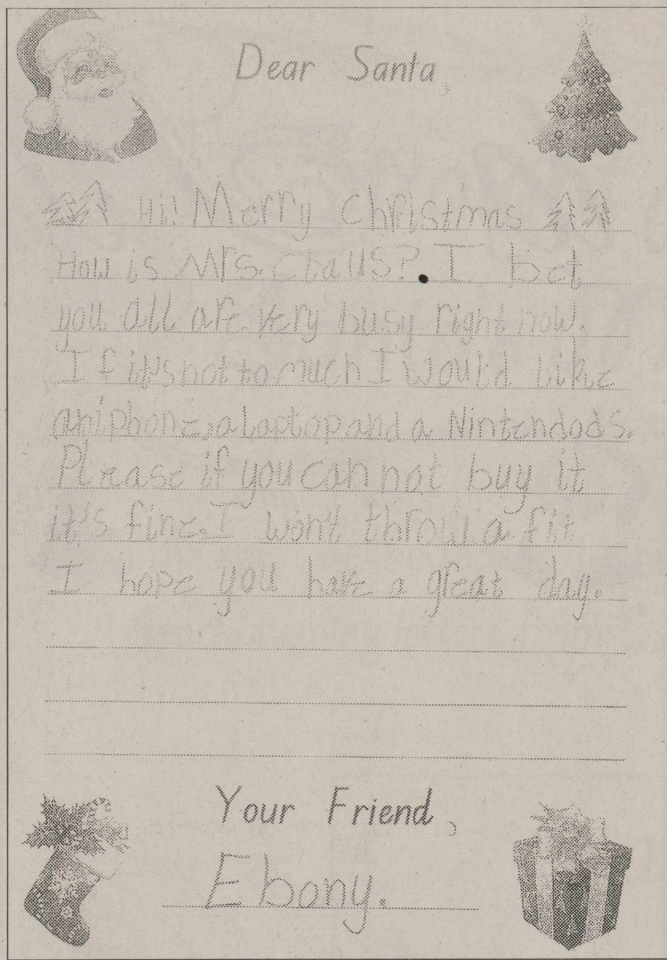 Dear Santa,
Hi! Merry Christmas
How is Mrs. Claus? I bet
you all are very busy right now.
If it's not to much I would like
an iphone, a laptop and a Nintendods.
Please if you can not buy it
it's fine. I won't throw a fit
I hope you have a great day.
Your Friend,
Ebony.